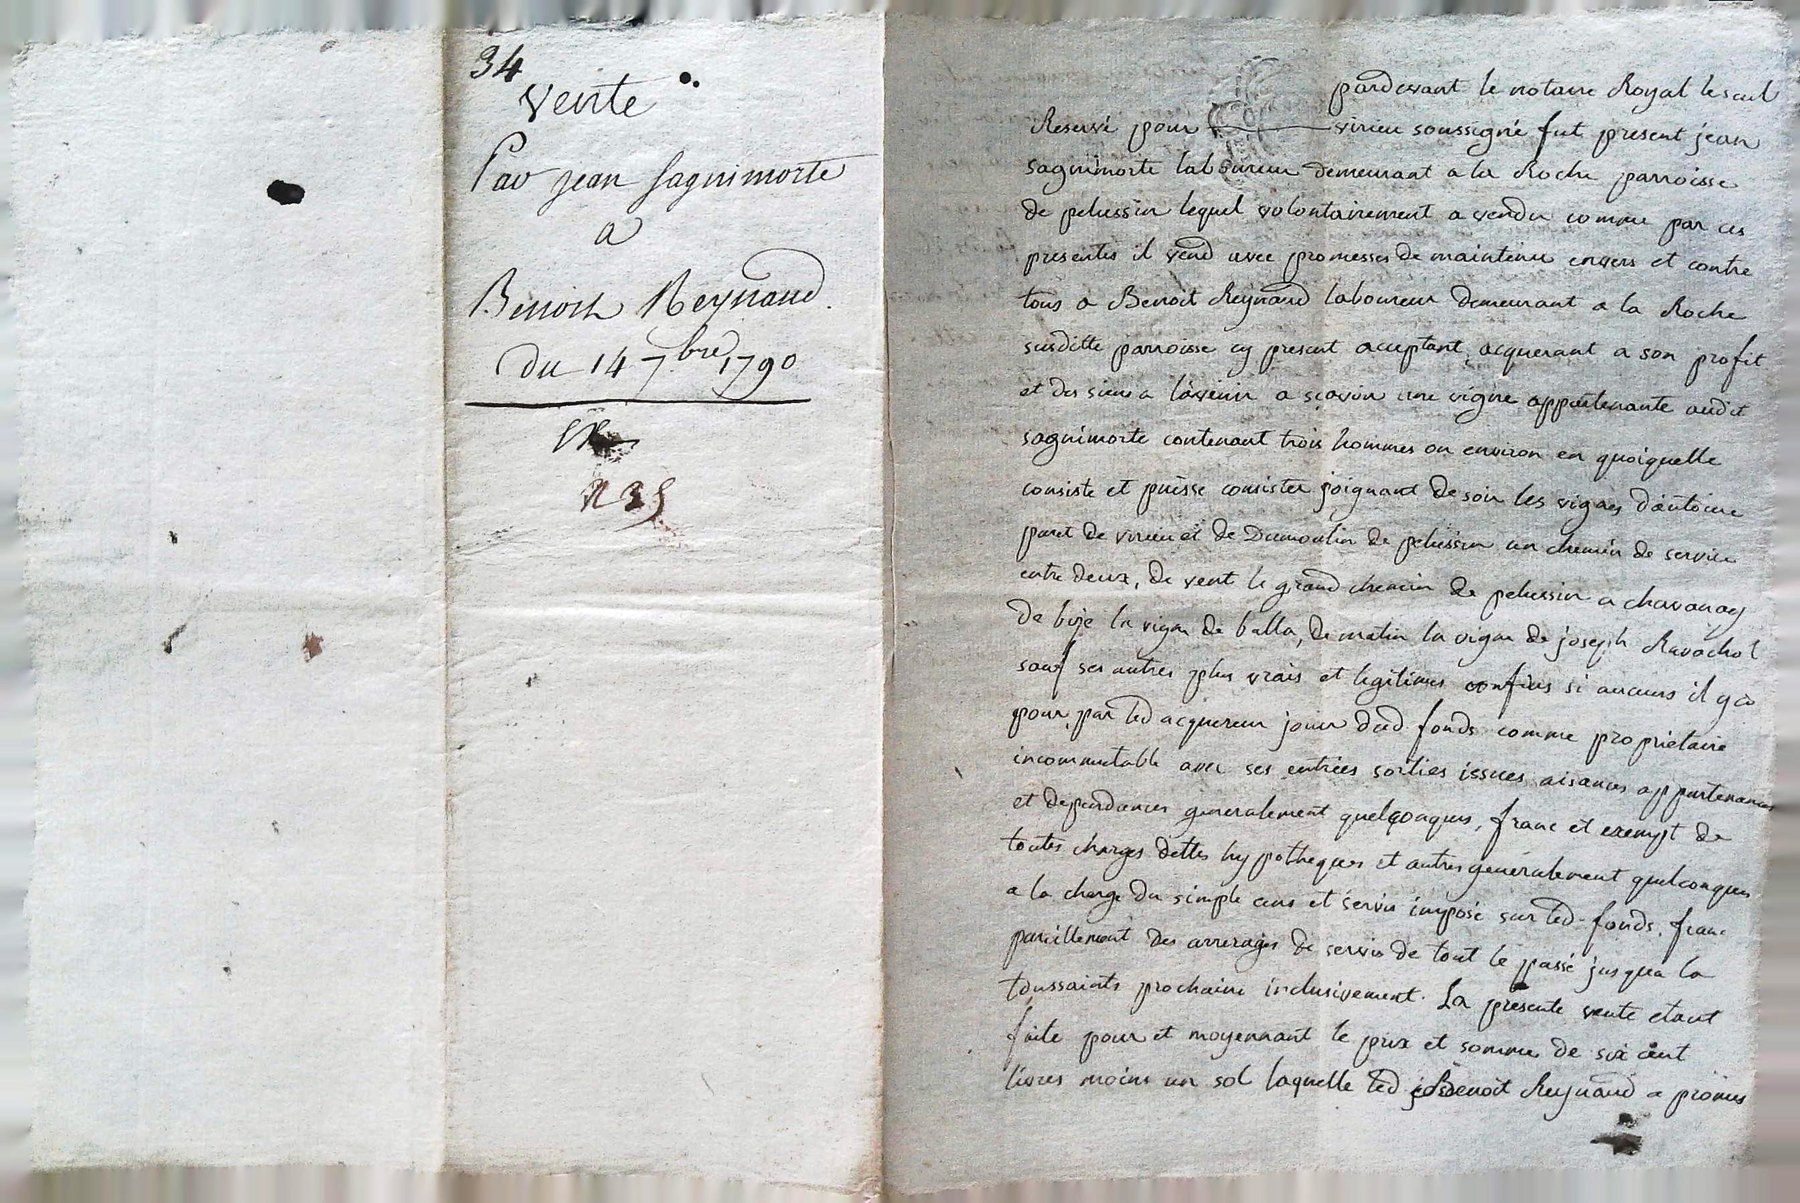 34
Vente
Par jean sagnimorte
a
Benoit Reynaud.
Du 14 7bre 1790
n 35
pardevant le notaire Royal le seul
Reservé pour virieu soussigné fut present jean
sagnimorte laboureur demeurant a la Roche parroisse
de pelussin lequel volontairement a vendu comme par ces
presentes il vend avec promesses de maintenir envers et contre
tous a Benoit Reynaud laboureur demeurant a la Roche
susditte parroisse cy present acceptant acquerant a son profit
et des siens a l'avenir a sçavoir une vigne appartenante audit
sagnimorte contenant trois hommes ou environ en quoiquelle
consiste et puisse consister joignant de soir les vignes d'antoine
paret de virieu et de Dumoulin de pelussin un chemin de service
entre deux, de vent le grand chemin de pelussin a chavanay
de bize la vigne de balla, de matin la vigne de joseph Ravachol
sauf ses autres plus vrais et legitimes confins si aucuns il y a
pour par led acquereur jouir dud fonds comme proprietaire
incommutable avec ses entrées sorties issues aisances appartenances
et dependances generalement quelconques, franc et exempt de
toutes charges dettes hypotheques et autres generalement quelconques
a la charge du simple cens et servis imposé sur led. fonds. franc
pareillement des arrerages de servis de tout le passé jusqua la
toussaints prochaine inclusivement. La presente vente etant
faite pour et moyennant le prix et somme de six cent
livres moins un sol laquelle led Benoit Reynaud a promis